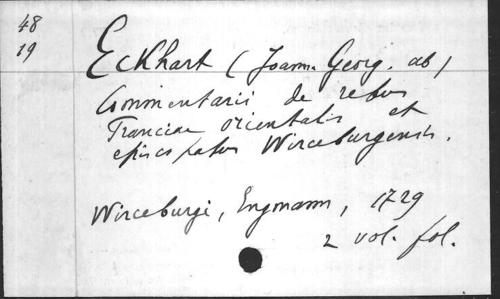 48
19
Eckhart (Joann. Georg. ab)
Commentarii de rebus
Franciae orientalis et
episcopatus Wirceburgensis.
Wirceburgi, Engmann, 1729
2 vol. fol.